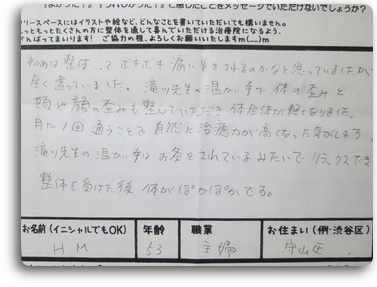 「よかった！」「うれしかった！」と感じたことをメッセージでいただけないでしょうか？
フリースペースにはイラストや絵など、どんなことを書いていただいても構いません。
もっともっとたくさんの方に整体を通して喜んでいただける治療院になるよう、
がんばってまいります！ ご協力の程、よろしくお願いいたしますm(__)m
初めは整体…って ボキボキ 痛い事をされるのかなと思っていましたが
全く違っていました。滝川先生の温かい手で 体の歪みと
頭や顔の歪みも整えていただき 体全体が軽くなりました。
月に1回通うことで 自然に治癒力が高くなった気がします。
滝川先生の温かい手は お灸をされているみたいで リラックスでき
整体を受けた後 体がぽかぽかです。
お名前(イニシャルでもOK) 年齢 職業 お住まい(例・渋谷区)
H M 53 主婦 守山区